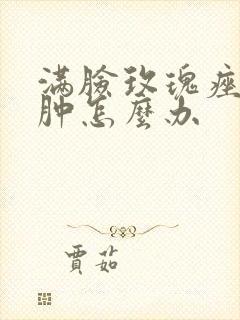 满臉玫瑰痤
肿怎麼办
賈茹